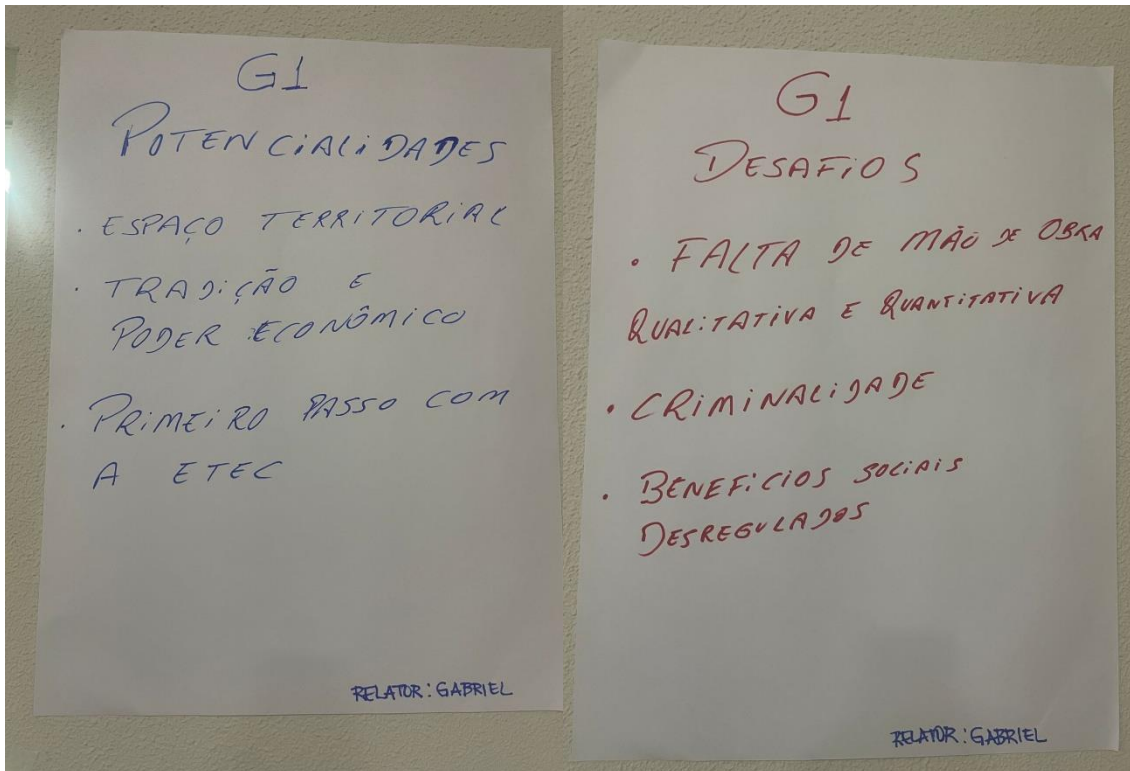 G1
POTENCIALIDADES
· ESPAÇO TERRITORIAL
· TRADIÇÃO E
PODER ECONÔMICO
· PRIMEIRO PASSO COM
A ETEC
RELATOR: GABRIEL
G1
DESAFIOS
· FALTA DE MÃO DE OBRA
QUALITATIVA E QUANTITATIVA
· CRIMINALIDADE
· BENEFÍCIOS SOCIAIS
DESREGULADOS
RELATOR: GABRIEL